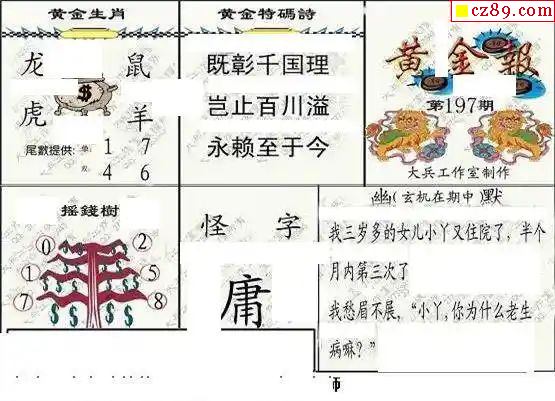 cz89.com
黄金生肖
龙 鼠
虎 羊
$
尾數提供: 单: 1 7
双: 4 6
黄金特碼詩
既彰千国理
岂止百川溢
永赖至于今
黄金報
第197期
大兵工作室制作
摇錢樹
0 2
1 5
7 8
怪 字
庸
幽(玄机在期中)默
我三岁多的女儿小丫又住院了，半个
月内第三次了
我愁眉不展，“小丫，你为什么老生
病嘛？”